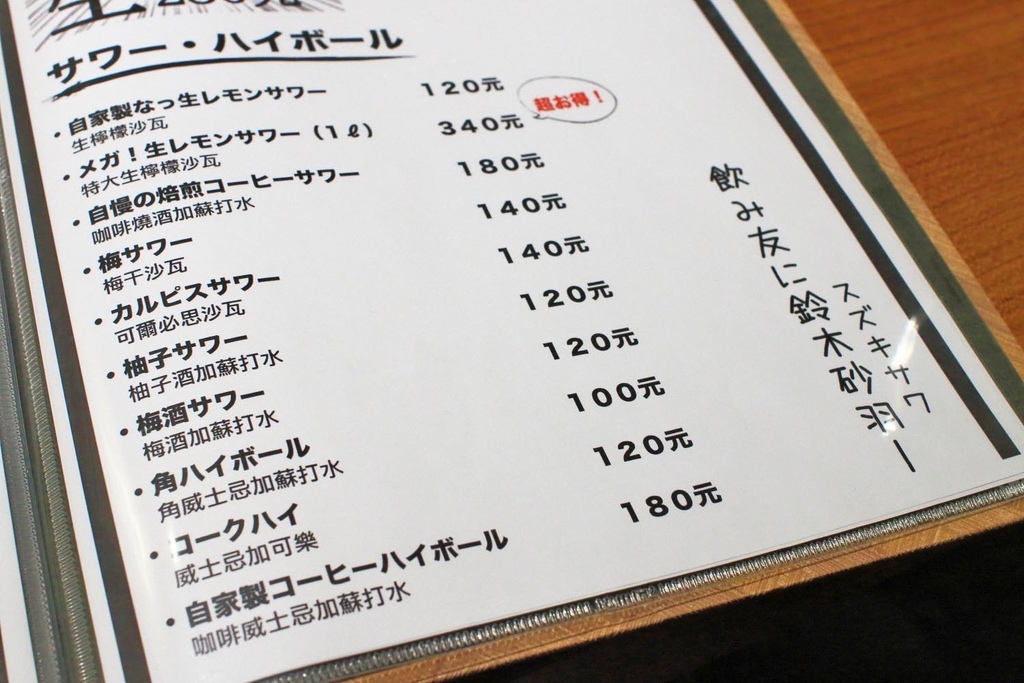 生
サワー・ハイボール
・自家製なっ生レモンサワー 120元
生檸檬沙瓦
・メガ！生レモンサワー（1ℓ） 340元 超お得！
特大生檸檬沙瓦
・自慢の焙煎コーヒーサワー 180元
咖啡燒酒加蘇打水
・梅サワー 140元
梅干沙瓦
・カルピスサワー 140元
可爾必思沙瓦
・柚子サワー 120元
柚子酒加蘇打水
・梅酒サワー 120元
梅酒加蘇打水
・角ハイボール 100元
角威士忌加蘇打水
・コークハイ 120元
威士忌加可樂
・自家製コーヒーハイボール 180元
咖啡威士忌加蘇打水
飲み友に鈴木砂羽ー
スズキサワ